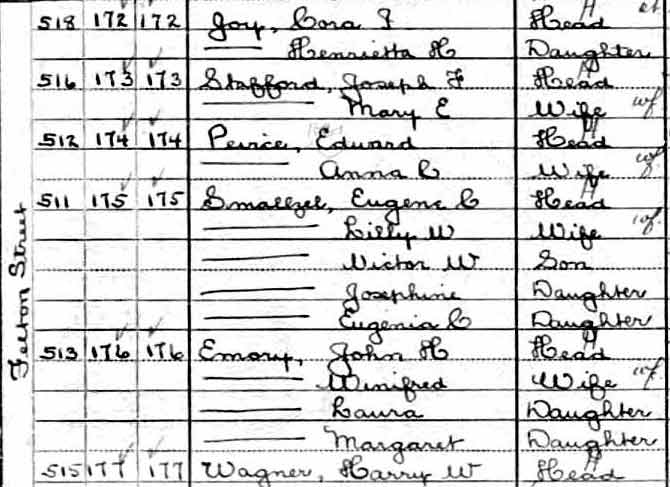 518 172 172 Joy, Cora F Head
Henrietta H Daughter
516 173 173 Stafford, Joseph F Head
Mary E Wife wf
512 174 174 Peirce, Edward Head
Anna C Wife wf
511 175 175 Smallzel, Eugene C Head
Lilly W Wife wf
Victor W Son
Josephine Daughter
Eugenia C Daughter
513 176 176 Emory, John H Head
Winifred Wife wf
Laura Daughter
Margaret Daughter
515 177 177 Wagner, Harry W Head
Felton Street